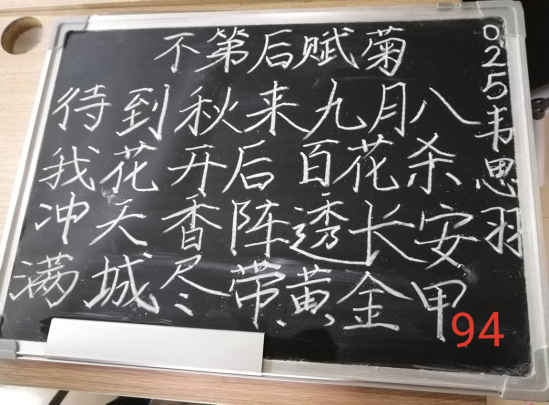 不第后赋菊
待到秋来九月八
我花开后百花杀
冲天香阵透长安
满城尽带黄金甲
025韦思羽
94